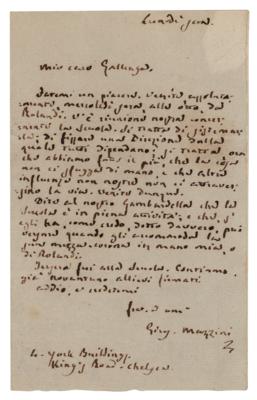 Lunedì sera.
mio caro Gallenga,
Fatemi un piacere. Venite assoluta-
mente, mercoledì sera, alle otto, da
Rolandi. V'è riunione nostra concer-
nente la Scuola. Si tratta di sistemar-
la: di fissare una Direzione dalla
quale tutti dipendano: si tratta, ora
che abbiamo fatto il più, che la cosa
non ci sfugga di mano, e che altre
influenze non nostre non ci attraver-
sino la via. Venite dunque.
Dite al nostro Gambardella che la
Scuola è in piena attività: e che, s'
egli ha, come credo, detto davvero, può
versare quando gli accomoda la
sua mezza corona in mano mia, o
di Rolandi.
Iersera fui alla Scuola. Contiamo
già novantuno allievi firmati
addio, e credetemi
Gius. Mazzini
4. York Buildings
King's Road - Chelsea.